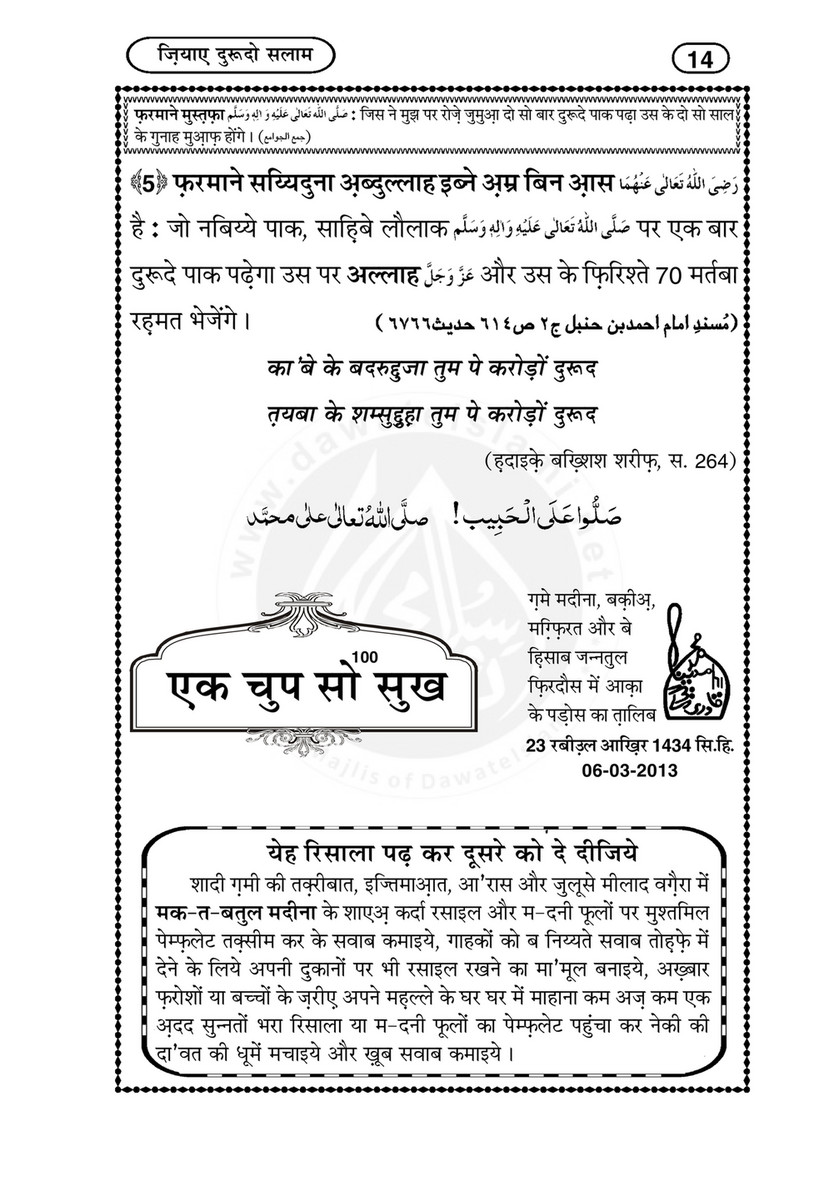 ज़ियाए दुरूदो सलाम
14
फ़रमाने मुस्त़फ़ा صَلَّى اللّٰهُ تَعَالٰى عَلَيْهِ وَاٰلِهٖ وَسَلَّم : जिस ने मुझ पर रोज़े जुमुआ़ दो सो बार दुरूदे पाक पढ़ा उस के दो सो साल
के गुनाह मुआ़फ़ होंगे । (جمع الجوامع)
﴾5﴿ फ़रमाने सय्यिदुना अ़ब्दुल्लाह इब्ने अ़म्र बिन आ़स رَضِىَ اللّٰهُ تَعَالٰى عَنْهُمَا
है : जो नबिय्ये पाक, साह़िबे लौलाक صَلَّى اللّٰهُ تَعَالٰى عَلَيْهِ وَاٰلِهٖ وَسَلَّم पर एक बार
दुरूदे पाक पढ़ेगा उस पर अल्लाह عَزَّ وَجَلَّ और उस के फ़िरिश्ते 70 मर्तबा
रह़मत भेजेंगे । (مُسندِ امام احمدبن حنبل ج٢ ص٦١٤ حديث٦٧٦٦)
का'बे के बदरुद्दुजा तुम पे करोड़ों दुरूद
त़यबा के शम्सुद्दुह़ा तुम पे करोड़ों दुरूद
(ह़दाइके़ बख़्शिश शरीफ़, स. 264)
صَلُّوا عَلَى الْحَبِيب! صلَّى اللّٰهُ تعالٰى على محمَّد
एक चुप सो100 सुख
ग़मे मदीना, बक़ीअ़,
मग़्फ़िरत और बे
ह़िसाब जन्नतुल
फ़िरदौस में आक़ा
के पड़ोस का त़ालिब
23 रबीउ़ल आख़िर 1434 सि.हि.
06-03-2013
येह रिसाला पढ़ कर दूसरे को दे दीजिये
शादी ग़मी की तक़्रीबात, इज्तिमाआ़त, आ'रास और जुलूसे मीलाद वग़ैरा में
मक-त-बतुल मदीना के शाएअ़ कर्दा रसाइल और म-दनी फूलों पर मुश्तमिल
पेम्फ़लेट तक़्सीम कर के सवाब कमाइये, गाहकों को ब निय्यते सवाब तोह़फ़े में
देने के लिये अपनी दुकानों पर भी रसाइल रखने का मा'मूल बनाइये, अख़्बार
फ़रोशों या बच्चों के ज़रीए अपने मह़ल्ले के घर घर में माहाना कम अज़ कम एक
अ़दद सुन्नतों भरा रिसाला या म-दनी फूलों का पेम्फ़लेट पहुंचा कर नेकी की
दा'वत की धूमें मचाइये और ख़ूब सवाब कमाइये ।